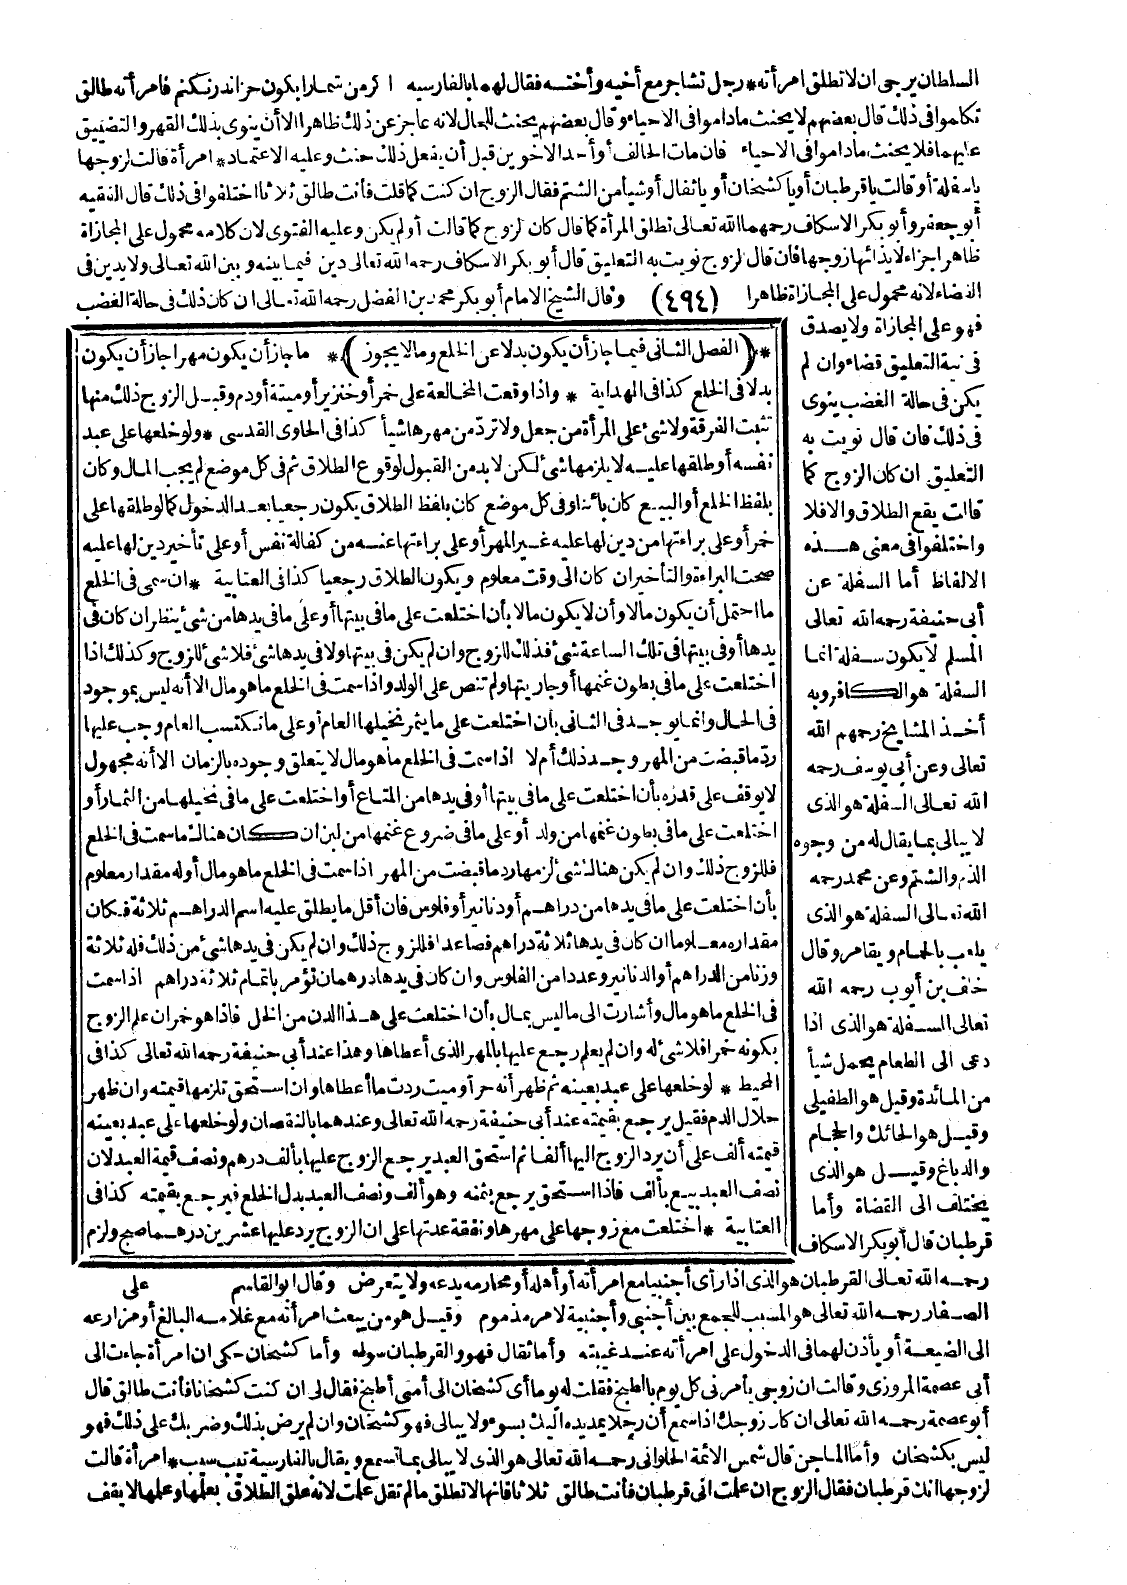 السلطان يرجى ان لا تطلق امرأته * رجل تشاجر مع أخيه وأخته فقال لهما بالفارسية اكر من شمارا بكون خراندرنكنم فامرأته طالق
تكلموا فى ذلك قال بعضهم لا يحنث ماداموا فى الاحياء وقال بعضهم يحنث للحال لانه عاجز عن ذلك ظاهرا الا أن ينوى بذلك القهر والتضييق
عليهما فلا يحنث ماداموا فى الاحياء فان مات الحالف أو أحد الاخوين قبل أن يفعل ذلك حنث وعليه الاعتماد * امرأة قالت لزوجها
ياسفلة أو قالت ياقرطبان أو يا كشخان أو يا ثقال أو شيأ من الشتم فقال الزوج ان كنت كما قلت فأنت طالق ثلاثا اختلفوا فى ذلك قال الفقيه
أبو جعفر وأبو بكر الاسكاف رحمهما الله تعالى تطلق المرأة كما قال كان الزوج كما قالت أو لم يكن وعليه الفتوى لان كلامه محمول على المجازاة
ظاهرا جزاء لايذائها زوجها فان قال الزوج نويت به التعليق قال أبو بكر الاسكاف رحمه الله تعالى دين فيما بينه وبين الله تعالى ولا يدين فى
القضاء لانه محمول على المجازاة ظاهرا (٤٩٤) وقال الشيخ الامام أبو بكر محمد بن الفضل رحمه الله تعالى ان كان ذلك فى حالة الغضب
فهو على المجازاة ولا يصدق
فى نية التعليق قضاء وان لم
يكن فى حالة الغضب ينوى
فى ذلك فان قال نويت به
التعليق ان كان الزوج كما
قالت يقع الطلاق والا فلا
واختلفوا فى معنى هذه
الالفاظ أما السفلة عن
أبى حنيفة رحمه الله تعالى
المسلم لا يكون سفلة انما
السفلة هو الكافر وبه
أخذ المشايخ رحمهم الله
تعالى وعن أبى يوسف رحمه
الله تعالى السفلة هو الذى
لا يبالى بما يقال له من وجوه
الذم والشتم وعن محمد رحمه
الله تعالى السفلة هو الذى
يلعب بالحمام ويقامر وقال
خلف بن أيوب رحمه الله
تعالى السفلة هو الذى اذا
دعى الى الطعام يحمل شيأ
من المائدة وقيل هو الطفيلى
وقيل هو الحائك والحجام
والدباغ وقيل هو الذى
يختلف الى القضاة وأما
قرطبان قال أبو بكر الاسكاف
* (الفصل الثانى فيما جاز أن يكون بدلا عن الخلع وما لا يجوز) * ما جاز أن يكون مهرا جاز أن يكون
بدلا فى الخلع كذا فى الهداية * واذا وقعت المخالعة على خمر أو خنزير أو ميتة أو دم وقبل الزوج ذلك منها
تثبت الفرقة ولا شئ على المرأة من جعل ولا ترد من مهرها شيأ كذا فى الحاوى القدسى * ولو خلعها على عبد
نفسه أو طلقها عليه لا يلزمها شئ لكن لا بد من القبول لوقوع الطلاق ثم فى كل موضع لم يجب المال وكان
بلفظ الخلع أو البيع كان بائنا وفى كل موضع كان بلفظ الطلاق يكون رجعيا بعد الدخول كما لو طلقها على
خمر أو على براءتها من دين لها عليه غير المهر أو على براءتها عنه من كفالة نفس أو على تأخير دين لها عليه
صحت البراءة والتأخير ان كان الى وقت معلوم ويكون الطلاق رجعيا كذا فى العتابية * ان سمى فى الخلع
ما احتمل أن يكون مالا وأن لا يكون مالا بأن اختلعت على ما فى بيتها أو على ما فى يدها من شئ ينظر ان كان فى
يدها أو فى بيتها فى تلك الساعة شئ فذلك للزوج وان لم يكن فى بيتها ولا فى يدها شئ فلا شئ للزوج وكذلك اذا
اختلعت على ما فى بطون غنمها أو جاريتها ولم تنص على الولد واذا سمت فى الخلع ما هو مال الا أنه ليس بموجود
فى الحال وانما يوجد فى الثانى بأن اختلعت على ما يثمر نخيلها العام أو على ما تكتسب العام وجب عليها
رد ما قبضت من المهر وجد ذلك أم لا اذا سمت فى الخلع ما هو مال لا يتعلق وجوده بالزمان الا أنه مجهول
لا يوقف على قدره بأن اختلعت على ما فى بيتها أو فى يدها من المتاع أو اختلعت على ما فى نخيلها من الثمار أو
اختلعت على ما فى بطون غنمها من ولد أو على ما فى ضروع غنمها من لبن ان كان هناك ما سمت فى الخلع
فللزوج ذلك وان لم يكن هنالك شئ لزمها رد ما قبضت من المهر اذا سمت فى الخلع ما هو مال أو له مقدار معلوم
بأن اختلعت على ما فى يدها من دراهم أو دنانير أو فلوس فان أقل ما يطلق عليه اسم الدراهم ثلاثة فكان
مقداره معلوما ان كان فى يدها ثلاثة دراهم فصاعدا فللزوج ذلك وان لم يكن فى يدها شئ من ذلك فله ثلاثة
وزنا من الدراهم أو الدنانير وعددا من الفلوس وان كان فى يدها درهمان تؤمر باتمام ثلاثة دراهم اذا سمت
فى الخلع ما هو مال وأشارت الى ما ليس بمال بأن اختلعت على هذا الدن من الخل فاذا هو خمر ان علم الزوج
بكونه خمرا فلا شئ له وان لم يعلم رجع عليها بالمهر الذى أعطاها وهذا عند أبى حنيفة رحمه الله تعالى كذا فى
المحيط * لو خلعها على عبد بعينه ثم ظهر أنه حر أو ميت ردت ما أعطاها وان استحق تلزمها قيمته وان ظهر
حلال الدم فقيل يرجع بقيمته عند أبى حنيفة رحمه الله تعالى وعندهما بالنقصان ولو خلعها على عبد بعينه
قيمته ألف على أن يرد الزوج اليها ألفا ثم استحق العبد يرجع الزوج عليها بألف درهم ونصف قيمة العبد لان
نصف العبد بيع بألف فاذا استحق يرجع بثمنه وهو ألف ونصف العبد بدل الخلع فيرجع بقيمته كذا فى
العتابية * اختلعت مع زوجها على مهرها ونفقة عدتها على ان الزوج يرد عليها عشرين درهما صح ولزم
على
رحمه الله تعالى القرطبان هو الذى اذا رأى أجنبيا مع امرأته أو أهله أو محارمه يدعه ولا يتعرض وقال ابو القاسم
الصفار رحمه الله تعالى هو المسبب للجمع بين أجنبى وأجنبية لامر مذموم وقيل هو من يبعث امرأته مع غلامه البالغ أو مزارعه
الى الضيعة أو يأذن لهما فى الدخول على امرأته عند غيبته وأما ثقال فهو والقرطبان سواء وأما كشخان حكى ان امرأة جاءت الى
أبى عصمة المروزى وقالت ان زوجى يأمرنى كل يوم بالطبخ فقلت له يوما أى كشخان الى أمتى أطبخ فقال لى ان كنت كشخانا فأنت طالق قال
أبو عصمة رحمه الله تعالى ان كان زوجك اذا سمع أن رجلا يمد يده اليك بسوء ولا يبالى فهو كشخان وان لم يرض بذلك وضربك على ذلك فهو
ليس بكشخان وأما الماجن قال شمس الائمة الحلوانى رحمه الله تعالى هو الذى لا يبالى بما تسمع ويقال بالفارسية تيب سيب * امرأة قالت
لزوجها انك قرطبان فقال الزوج ان علمت انى قرطبان فأنت طالق ثلاثا قانها لا تطلق ما لم تقل علمت لانه علق الطلاق بعلمها وعلمها لا يقف